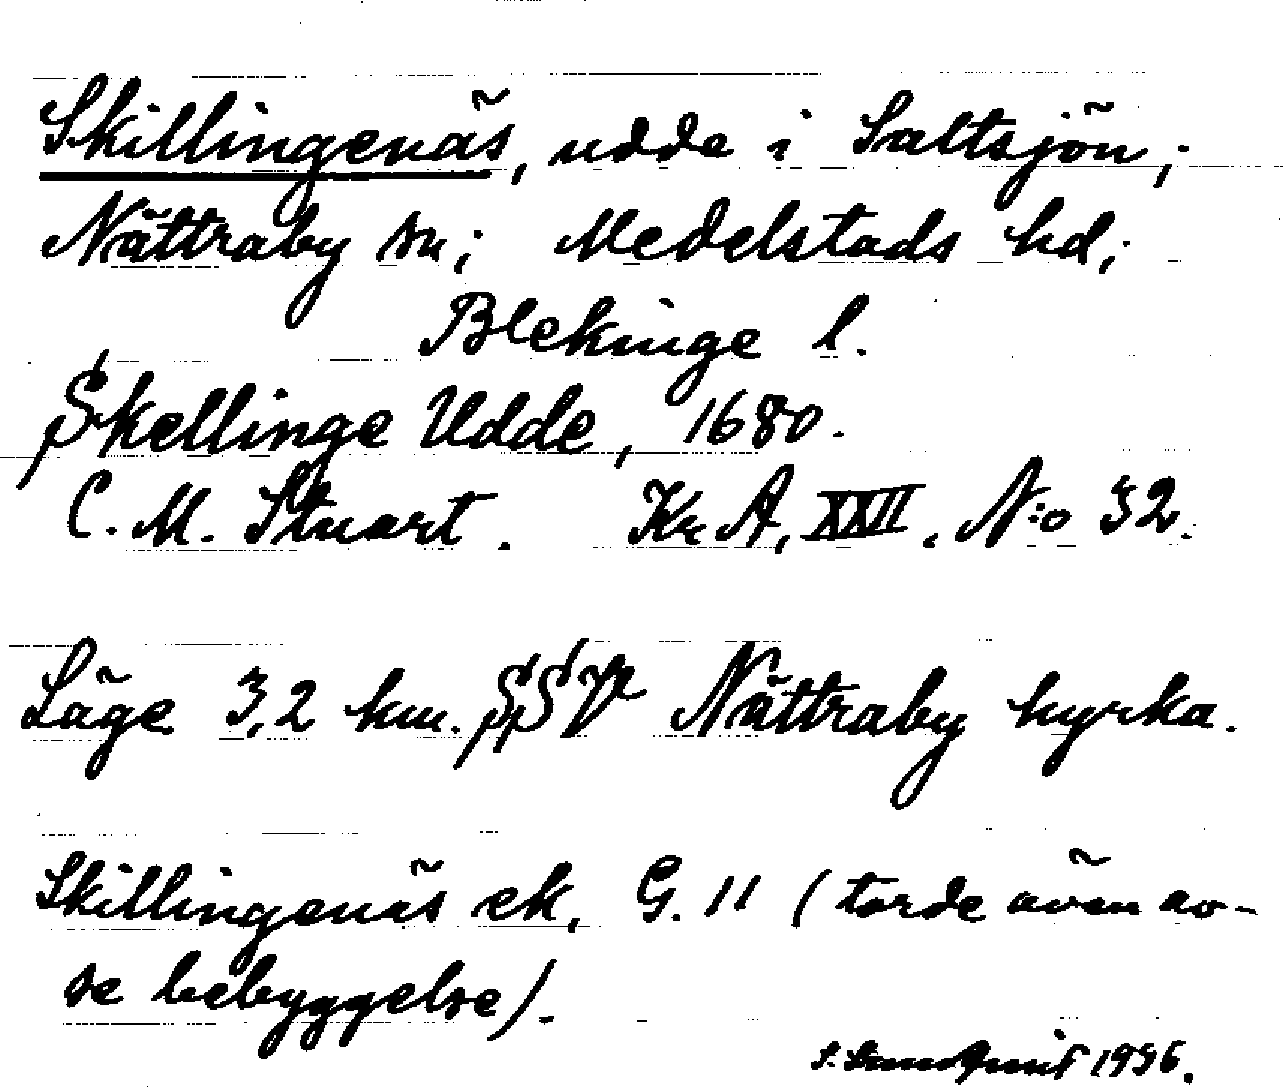 Skillingenäs, udde i Saltsjön;
Nättraby sn; Medelstads hd;
Blekinge l.
Skellinge Udde, 1680.
C. M. Stuart. Kr A, XXII. N:o 32.
Läge 3,2 km. SSV Nättraby kyrka.
Skillingenäs ek. G. 11 (torde även av-
se bebyggelse).
1936.